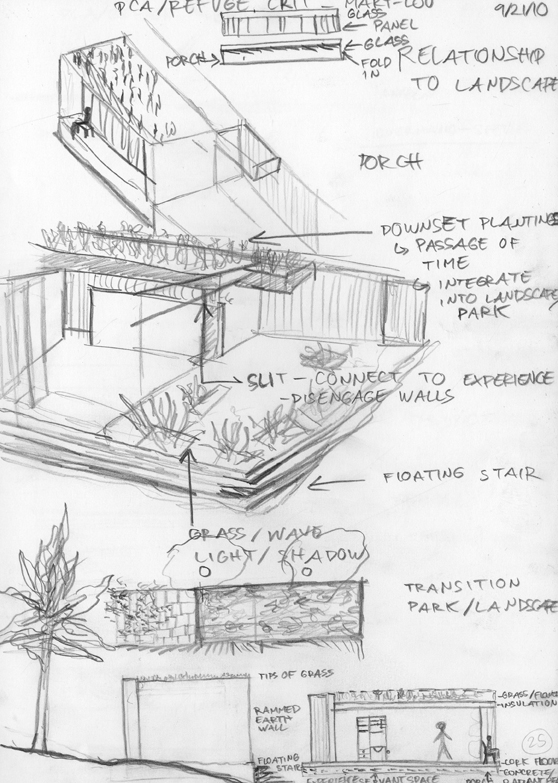 PCA/REFUGE CRIT - MARY-LOU
9/21/10
GLASS
PANEL
GLASS
PORCH
FOLD
IN
RELATIONSHIP
TO LANDSCAPE
PORCH
DOWNSET PLANTING
PASSAGE OF
TIME
INTEGRATE
INTO LANDSCAPE
PARK
SLIT - CONNECT TO EXPERIENCE
- DISENGAGE WALLS
FLOATING STAIR
GRASS/WAVE
LIGHT/SHADOW
TRANSITION
PARK/LANDSCAPE
TIPS OF GRASS
RAMMED
EARTH
WALL
FLOATING
STAIR
GRASS/
INSULATION
25
CORK
CONCRETE
PORCH